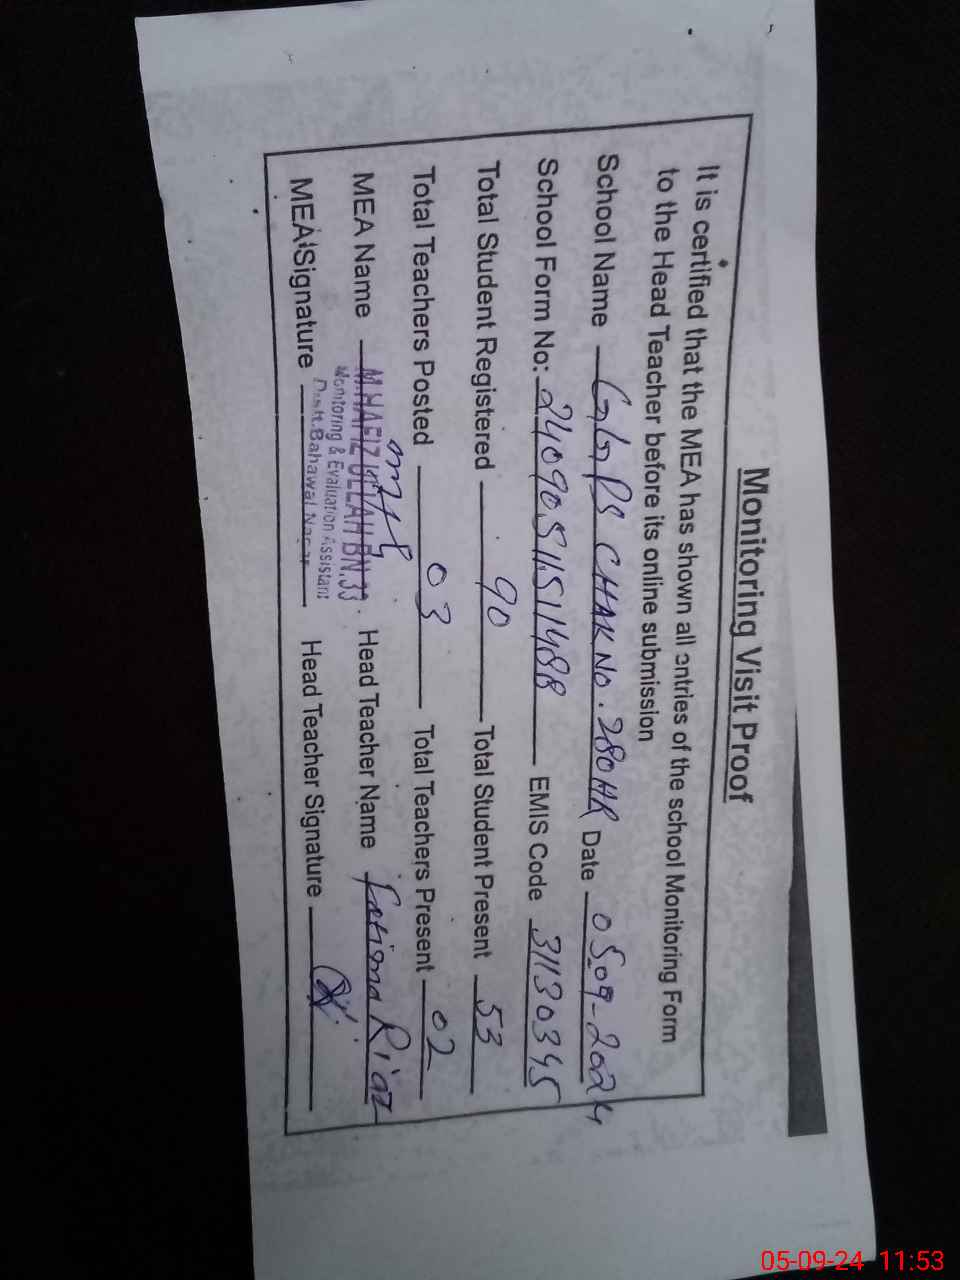 Monitoring Visit Proof
It is certified that the MEA has shown all entries of the school Monitoring Form
to the Head Teacher before its online submission
School Name GGPS CHAK NO. 280HR Date 05.09-2024
School Form No: 24090511511488 EMIS Code 31130345
Total Student Registered 90 Total Student Present 53
Total Teachers Posted 03 Total Teachers Present 02
MEA Name M.HAFIZ ULLAH BN.33 Head Teacher Name Fatima Riaz
Monitoring & Evaluation Assistant
Distt. Bahawal Nagar
MEA Signature Head Teacher Signature
05-09-24 11:53